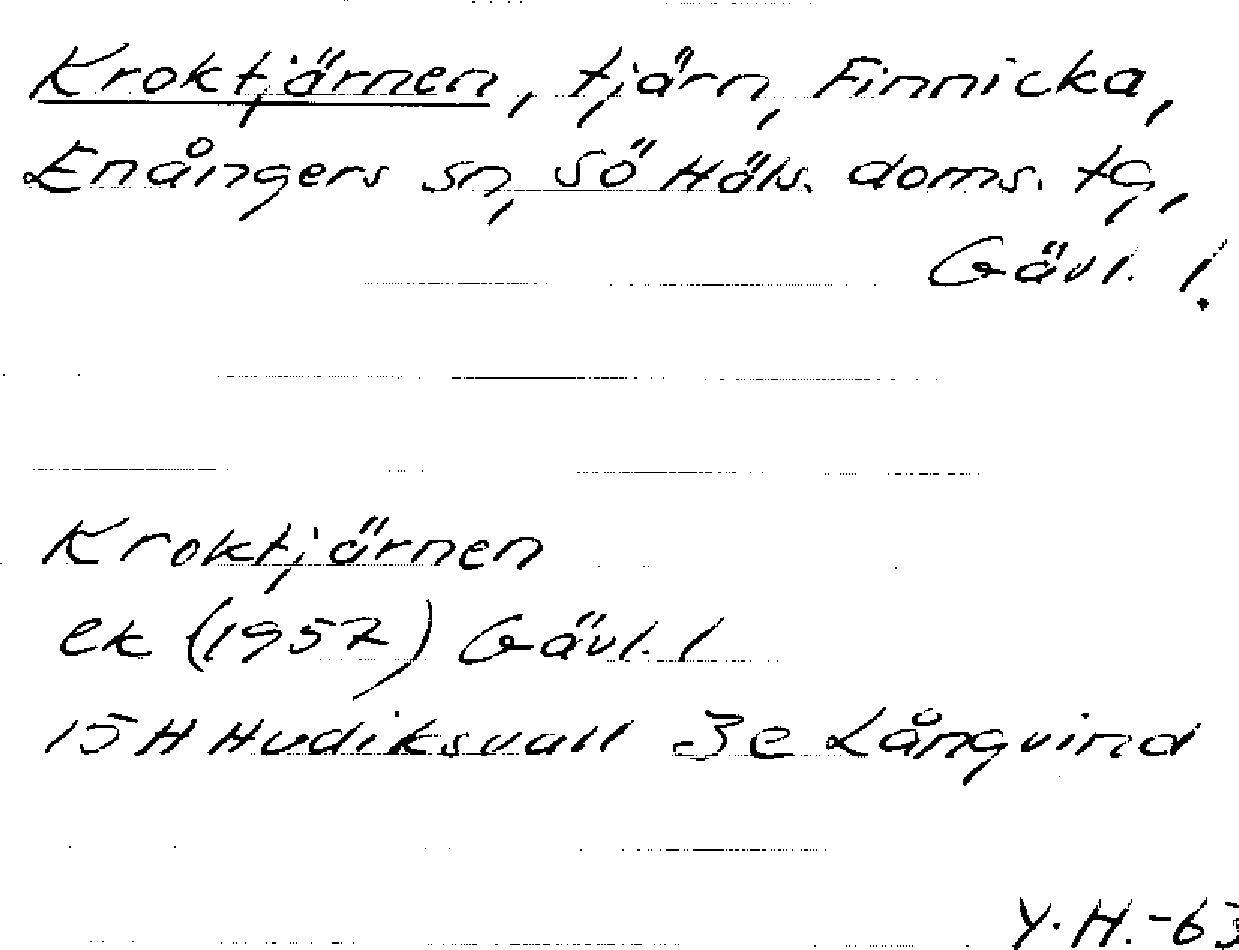 Kroktjärnen, tjärn, Finnicka,
Enångers sn, Sö Häls. doms. tg,
Gävl. l.
Kroktjärnen
ek (1957) Gävl. l
15 H Hudiksvall 3e Långvind
Y. H. -63